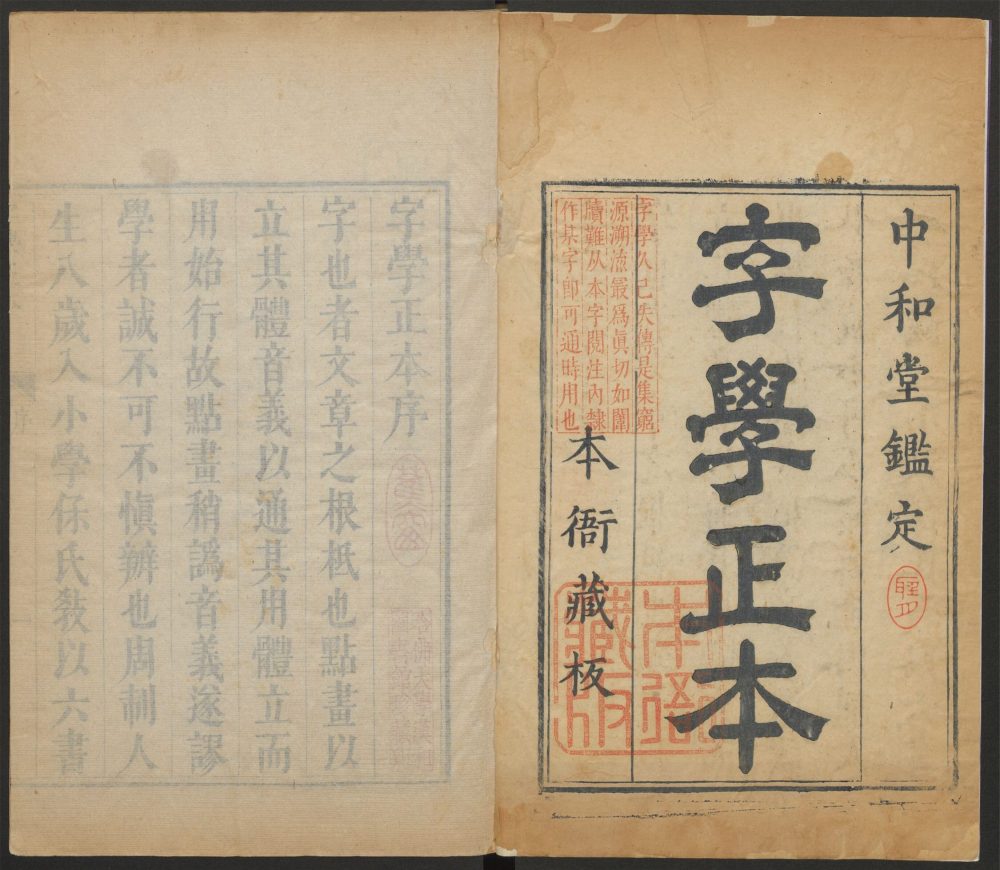 中和堂鑑定
字學正本
字學久已失傳是集窮
源溯流最爲眞切如闈
牘難从本字閱注內隸
作某字卽可通時用也
本衙藏板
本衙
藏版
字學正本序
字也者文章之根柢也點畫以
立其體音義以通其用體立而
用始行故點畫稍譌音義遂謬
學者誠不可不愼辨也周制人
生八歲入小學保氏敎以六書